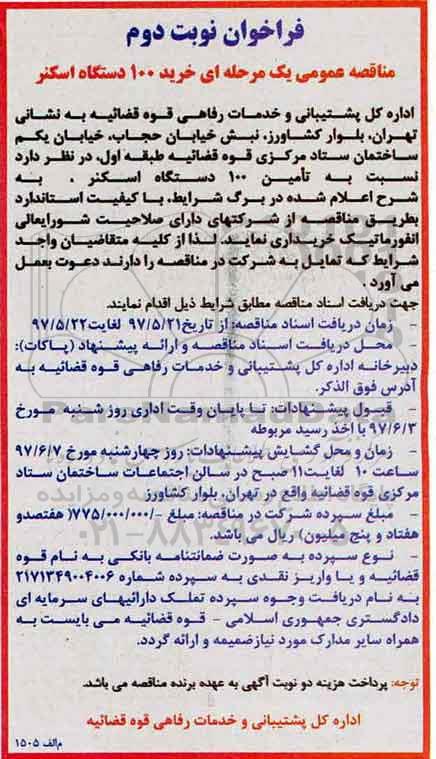 فراخوان نوبت دوم
مناقصه عمومی یک مرحله ای خرید ۱۰۰ دستگاه اسکنر
اداره کل پشتیبانی و خدمات رفاهی قوه قضائیه به نشانی
تهران، بلوار کشاورز، نبش خیابان حجاب، خیابان یکم
ساختمان ستاد مرکزی قوه قضائیه طبقه اول، در نظر دارد
نسبت به تأمین ۱۰۰ دستگاه اسکنر ، به
شرح اعلام شده در برگ شرایط، با کیفیت استاندارد
بطریق مناقصه از شرکتهای دارای صلاحیت شورایعالی
انفورماتیک خریداری نماید. لذا از کلیه متقاضیان واجد
شرایط که تمایل به شرکت در مناقصه را دارند دعوت بعمل
می آورد.
جهت دریافت اسناد مناقصه مطابق شرایط ذیل اقدام نمایند.
- زمان دریافت اسناد مناقصه: از تاریخ ۹۷/۵/۲۱ لغایت ۹۷/۵/۲۲
- محل دریافت اسناد مناقصه و ارائه پیشنهاد (پاکات):
دبیرخانه اداره کل پشتیبانی و خدمات رفاهی قوه قضائیه به
آدرس فوق الذکر.
- قبول پیشنهادات: تا پایان وقت اداری روز شنبه مورخ
۹۷/۶/۳ با اخذ رسید مربوطه
- زمان و محل گشایش پیشنهادات: روز چهارشنبه مورخ ۹۷/۶/۷
ساعت ۱۰ لغایت ۱۱ صبح در سالن اجتماعات ساختمان ستاد
مرکزی قوه قضائیه واقع در تهران، بلوار کشاورز
- مبلغ سپرده شرکت در مناقصه: مبلغ -/۷۷۵/۰۰۰/۰۰۰( هفتصدو
هفتاد و پنج میلیون) ریال می باشد.
- نوع سپرده به صورت ضمانتنامه بانکی به نام قوه
قضائیه و یا واریز نقدی به سپرده شماره ۲۱۷۱۳۴۹۰۰۴۰۰۶
به نام دریافت وجوه سپرده تملک دارائیهای سرمایه ای
دادگستری جمهوری اسلامی - قوه قضائیه می بایست به
همراه سایر مدارک مورد نیاز ضمیمه و ارائه گردد.
توجه: پرداخت هزینه دو نوبت آگهی به عهده برنده مناقصه می باشد.
اداره کل پشتیبانی و خدمات رفاهی قوه قضائیه
م الف ۱۵۰۵